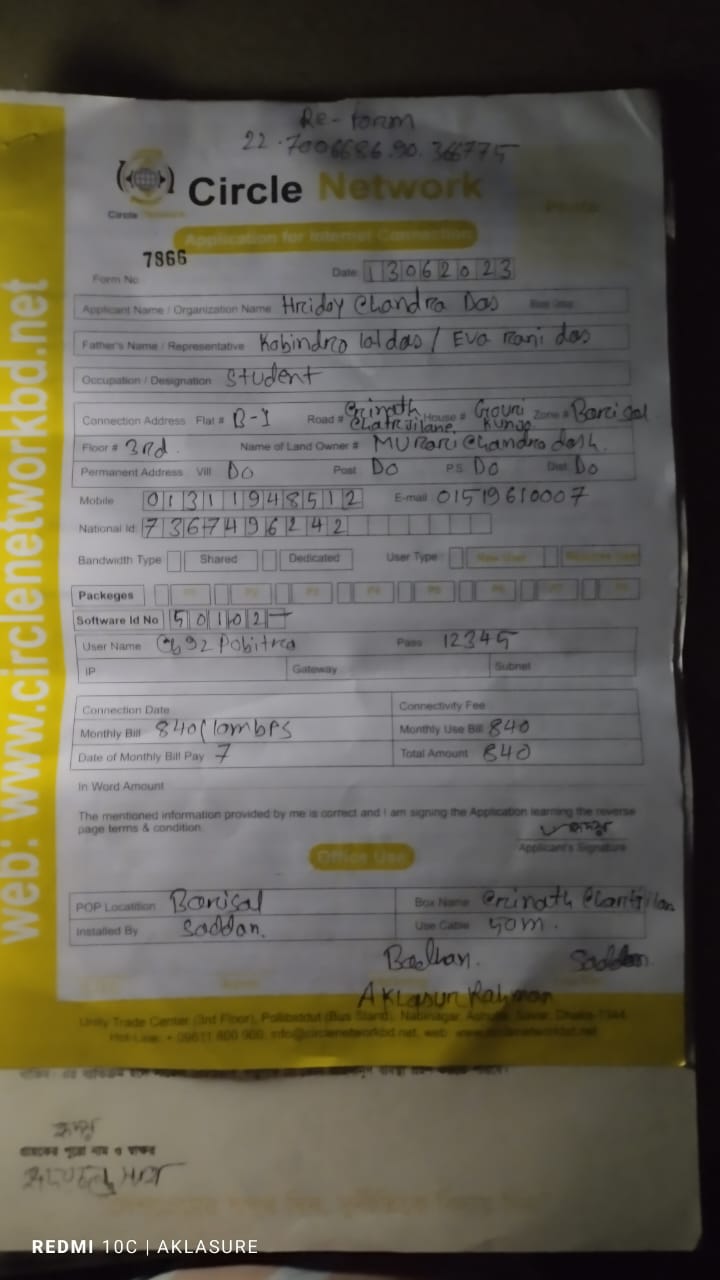 Re-form
22.7006686.90.366775
Circle Network
Circle Network
Application for Internet Connection
Photo
Form No. 7866
Date: 13062023
Applicant Name / Organization Name Hridoy Chandra Das
Father's Name / Representative Kobindro lal das / Eva Rani das
Occupation / Designation Student
Connection Address Flat # B-1 Road # House # Gouri Kunjo Zone # Barisal
Floor # 3rd. Name of Land Owner # MURari Chandra dash.
Permanent Address Vill Do Post Do P.S Do Dist Do
Mobile 01311948512 E-mail 01519610007
National Id: 7367496242
Bandwidth Type Shared Dedicated User Type New User
Packeges P1 P2 P3 P4 P5 P6 P7 P8
Software Id No 501027
User Name Pobitra Pass 12345
IP Gateway Subnet
Connection Date Connectivity Fee
Monthly Bill 840(10mbPS Monthly Use Bill 840
Date of Monthly Bill Pay 7 Total Amount 840
In Word Amount
The mentioned information provided by me is correct and I am signing the Application learning the reverse
page terms & condition.
Applicant's Signature
Office Use
POP Location Barisal Box Name
Installed By Saddan. Use Cable 50m.
Badhan. Saddam
AKlasur Rahman
Unity Trade Center (3rd Floor), Pollibiddut (Bus Stand), Nabinagar, Ashulia, Savar, Dhaka-1344
Hot-Line: + 09611 800 900, info@circlenetworkbd.net, web: www.circlenetworkbd.net
web: www.circlenetworkbd.net
গ্রাহকের পুরো নাম ও স্বাক্ষর
REDMI 10C | AKLASURE